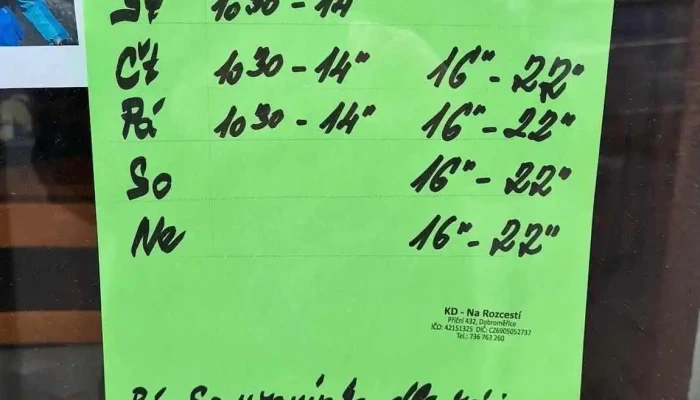 St 10³⁰ - 14"
Čt 10³⁰ - 14" 16" - 22"
Pá 10³⁰ - 14" 16" - 22"
So 16" - 22"
Ne 16" - 22"
KD - Na Rozcestí
Příční 432, Dobroměřice
IČO: 42151325 DIČ: CZ6905052737
Tel.: 736 763 260
Pá, So